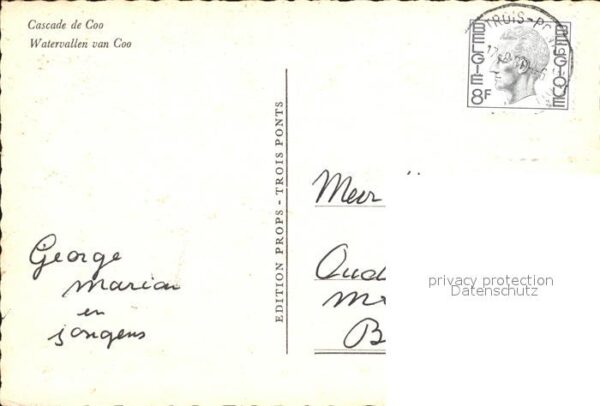 Cascade de Coo
Watervallen van Coo
TROIS-PO
BELGIE BELGIQUE
8F
EDITION PROPS - TROIS PONTS
Meer
George
Marian
en
jongens
Oud
B
privacy protection
Datenschutz